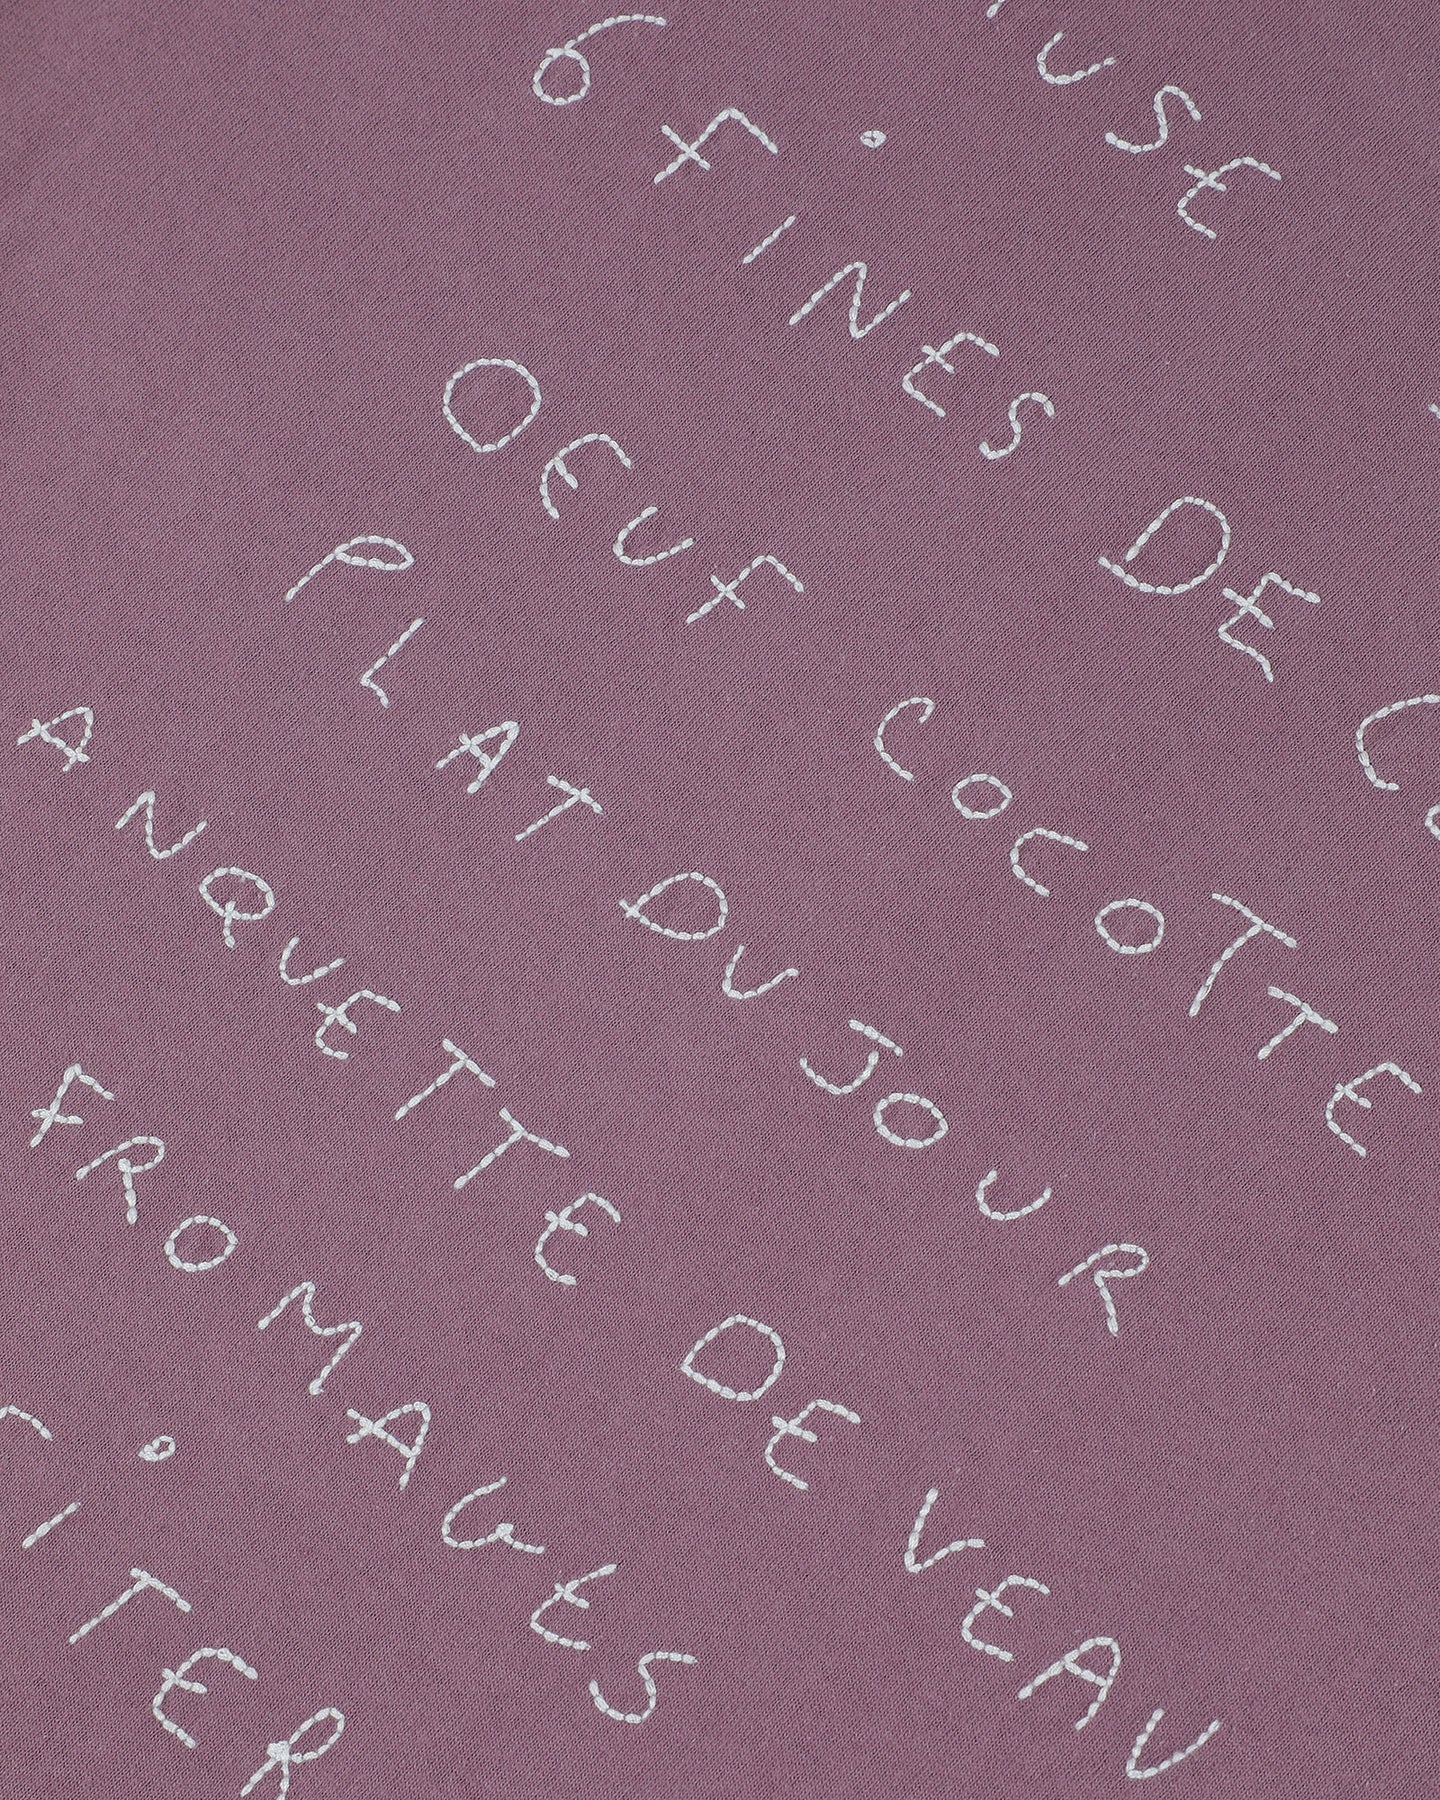 USE
6 FINES DE
OEUF COCOTTE
PLAT DU JOUR
ANQUETTE DE VEAU
FROMAGES
ITER